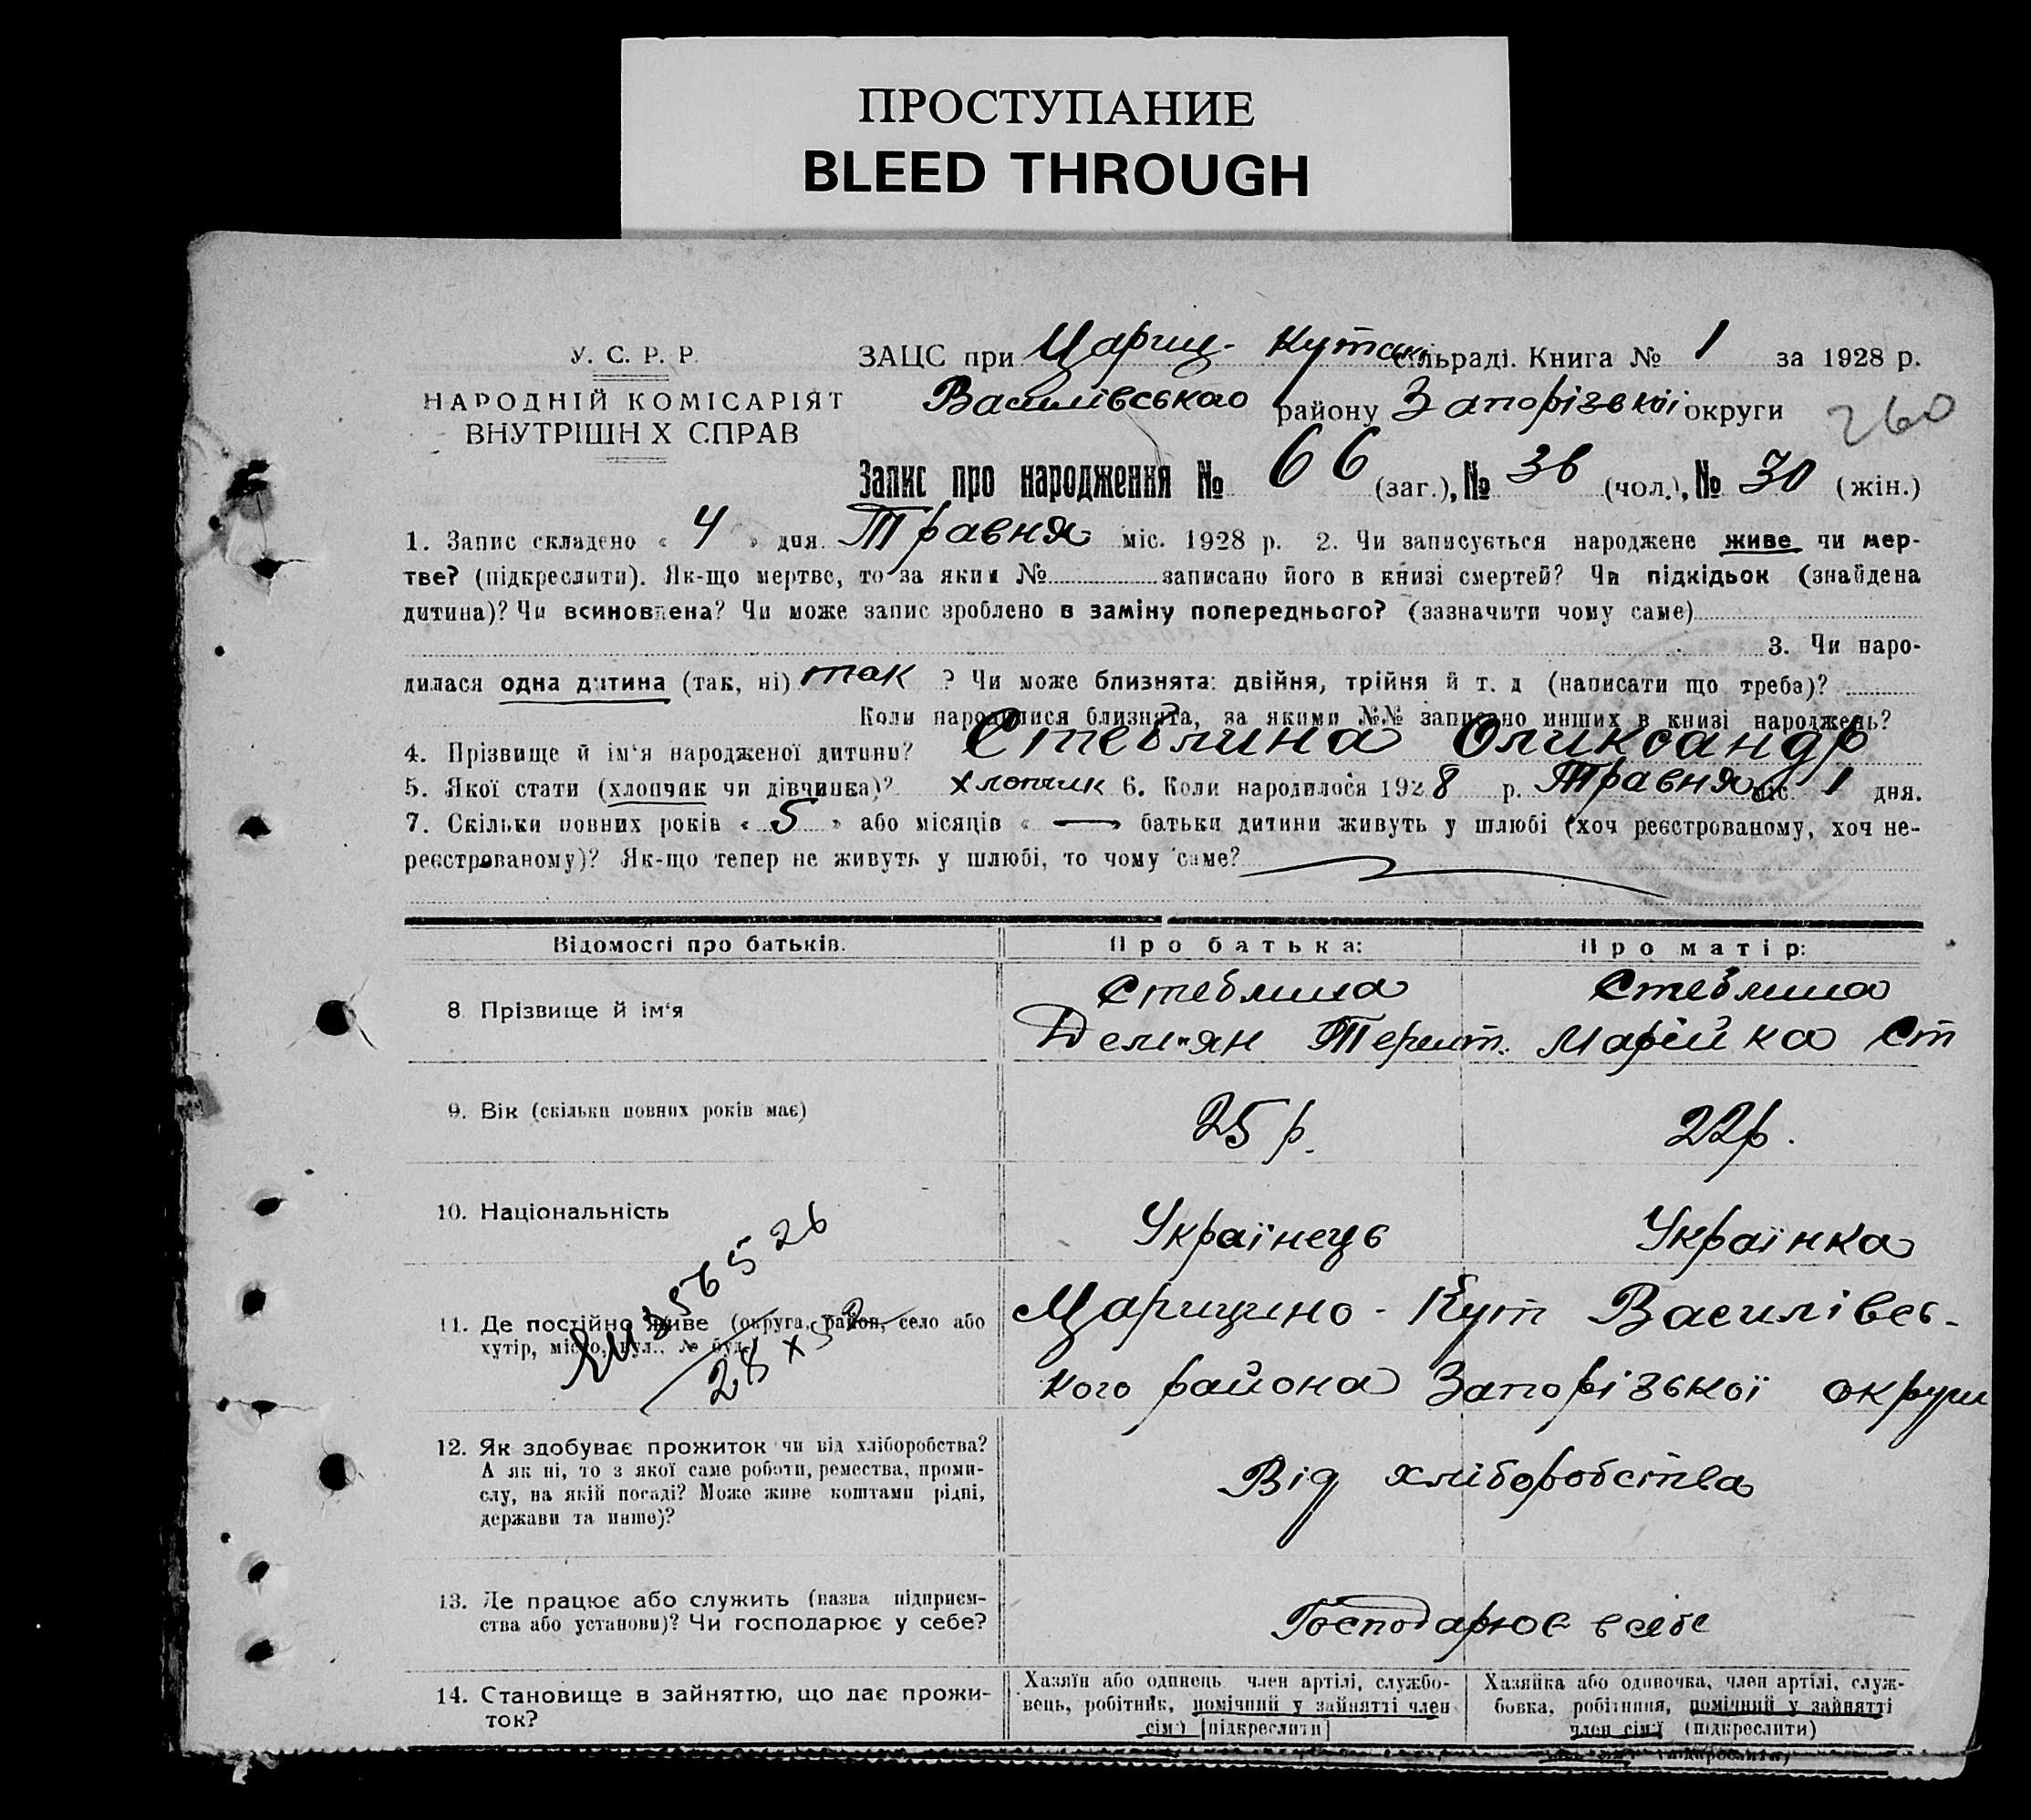 ПРОСТУПАНИЕ
BLEED THROUGH
У. С. Р. Р.
НАРОДНІЙ КОМІСАРІЯТ
ВНУТРІШН Х СПРАВ
ЗАЦС при Цариц- Кутськ сільраді. Книга № 1 за 1928 р.
Василівського району Запорізької округи
260
Запис про народження № 66 (заг.), № 36 (чол.), № 30 (жін.)
1. Запис складено « 4 » дня Травня міс. 1928 р. 2. Чи записується народжене живе чи мер-
тве? (підкреслити). Як-що мертве, то за яким № записано його в книзі смертей? Чи підкідьок (знайдена
дитина)? Чи всиновлена? Чи може запис зроблено в заміну попереднього? (зазначити чому саме)
3. Чи наро-
дилася одна дитина (так, ні) так ? Чи може близнята: двійня, трійня й т. д (написати що треба)?
Коли народилися близнята, за якими №№ записано инших в книзі народжень?
4. Прізвище й ім'я народженої дитини? Стеблина Оликсандр
5. Якої стати (хлопчик чи дівчинка)? хлопчик 6. Коли народилося 1928 р. Травня міс. 1 дня.
7. Скільки повних років « 5 » або місяців « — » батьки дитини живуть у шлюбі (хоч реєстрованому, хоч не-
реєстрованому)? Як-що тепер не живуть у шлюбі, то чому саме?
Відомості про батьків. Про батька: Про матір:
8. Прізвище й ім'я
Стеблина Стеблина
Дем"ян Терент. Марійка Ст
9. Вік (скільки повних років має) 25 р. 22 р.
10. Національність Українець Українка
11. Де постійно живе (округа, район, село або
хутір, місто, вул., № буд.
28 X 52
Царицино - Кут Василівсь-
кого района Запорізької округи
12. Як здобуває прожиток чи від хліборобства?
А як ні, то з якої саме роботи, ремества, проми-
слу, на якій посаді? Може живе коштами рідні,
держави та инше)?
Від хліборобства
13. Де працює або служить (назва підприєм-
ства або установи)? Чи господарює у себе?
Господарює в себе
14. Становище в зайняттю, що дає прожи-
ток?
Хазяїн або одинець член артілі, службо-
вець, робітник, помічний у зайнятті член
сім'ї [підкреслити]
Хазяйка або одиночка, член артілі, служ-
бовка, робітниця, помічний у зайнятті
член сім'ї (підкреслити)